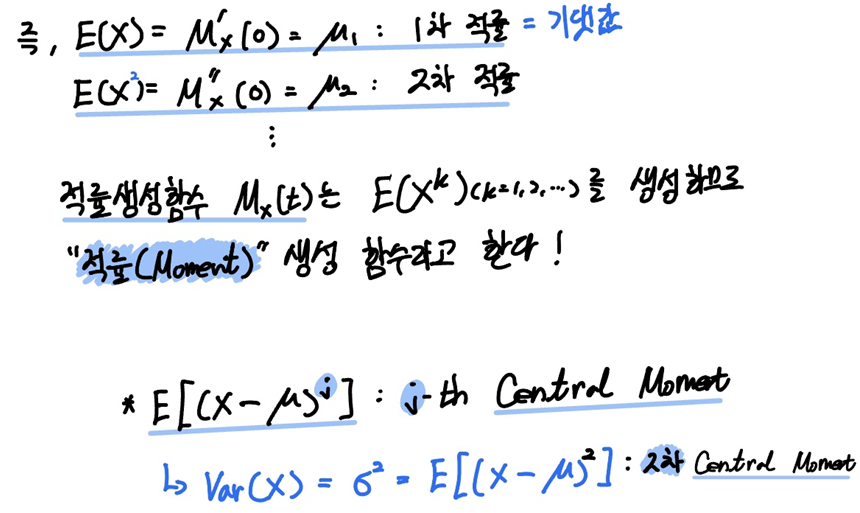 즉, E(X) = M'ₓ(0) = μ₁ : 1차 적률 = 기댓값
E(X²) = M''ₓ(0) = μ₂ : 2차 적률
⋮
적률생성함수 Mₓ(t)는 E(Xᵏ)(k=1,2,…)를 생성하므로
"적률(Moment)" 생성 함수라고 한다!
* E[(X-μ)ʲ] : j-th Central Moment
↳ Var(X) = σ² = E[(X-μ)²] : 2차 Central Moment